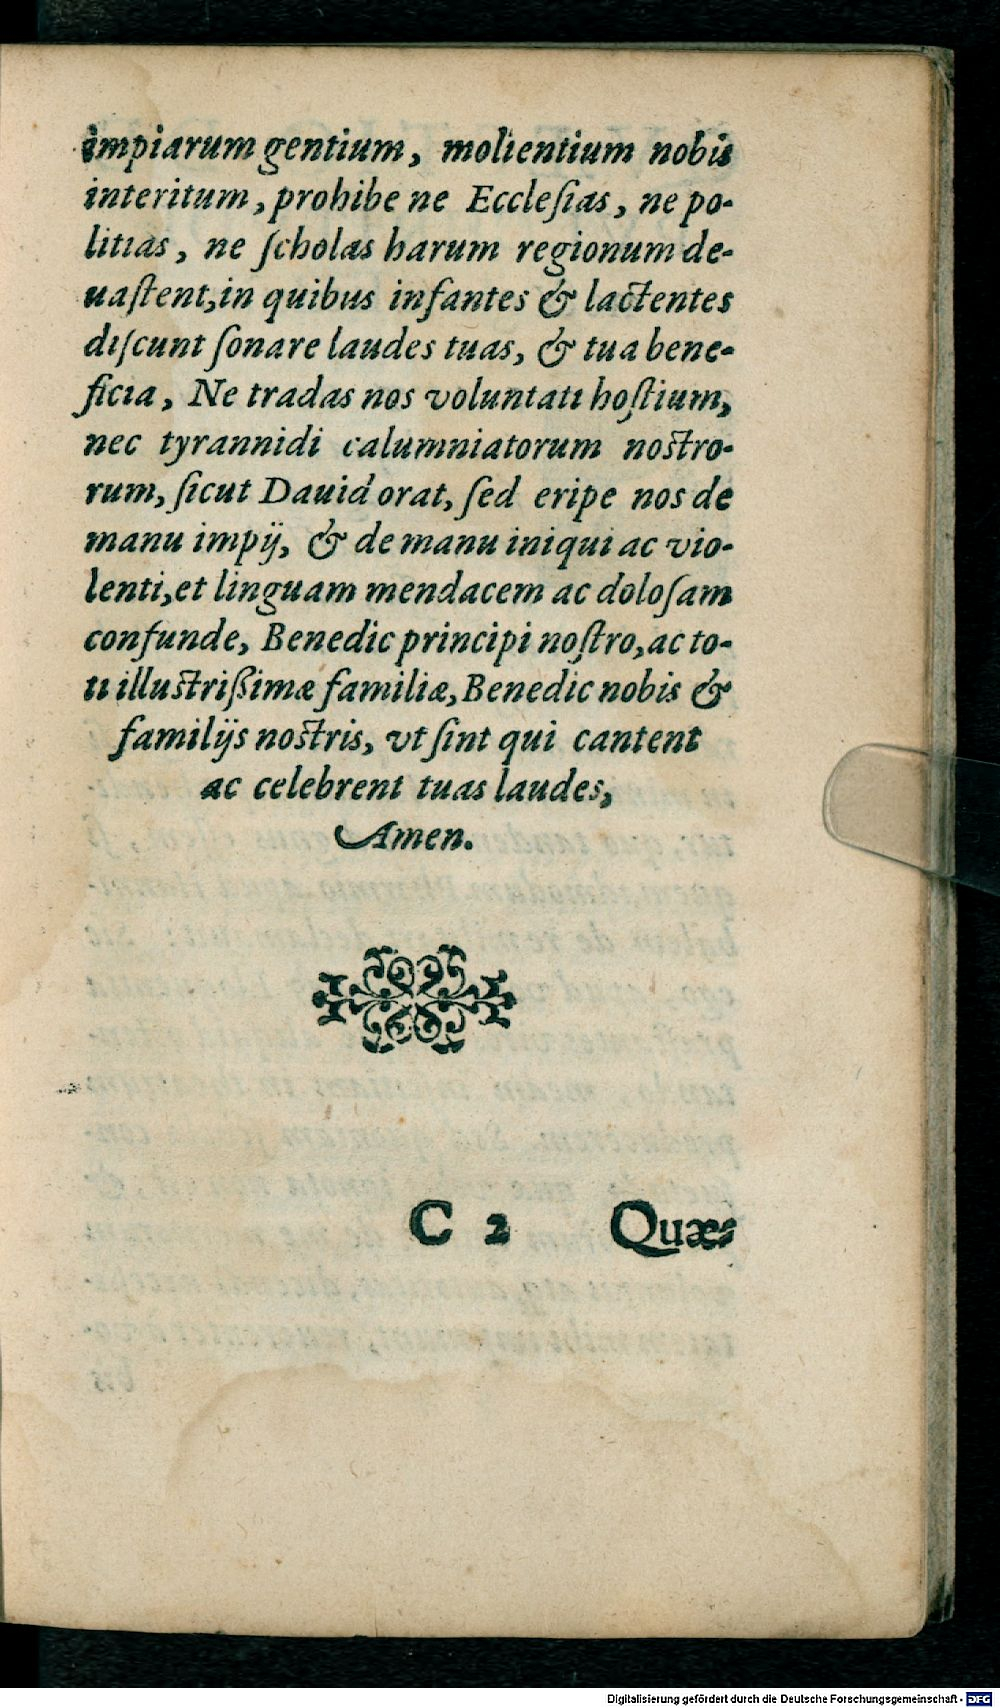 impiarum gentium, molientium nobis
interitum, prohibe ne Eccleſias, ne po-
litias, ne ſcholas harum regionum de-
uaſtent, in quibus infantes & lactentes
diſcunt ſonare laudes tuas, & tua bene-
ficia, Ne tradas nos voluntati hoſtium,
nec tyrannidi calumniatorum noſtro-
rum, ſicut Dauid orat, ſed eripe nos de
manu impij, & de manu iniqui ac vio-
lenti, et linguam mendacem ac doloſam
confunde, Benedic principi noſtro, ac to-
ti illuſtrißimæ familiæ, Benedic nobis &
familijs noſtris, vt ſint qui cantent
ac celebrent tuas laudes,
Amen.
C 2 Quæ-
Digitalisierung gefördert durch die Deutsche Forschungsgemeinschaft - DFG